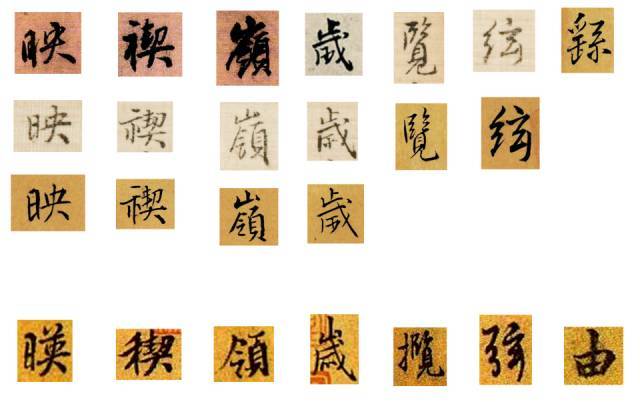 映禊嶺歲覽絃繇
映禊嶺歲覽絃
映禊嶺歲
暎稧領歲攬弦由